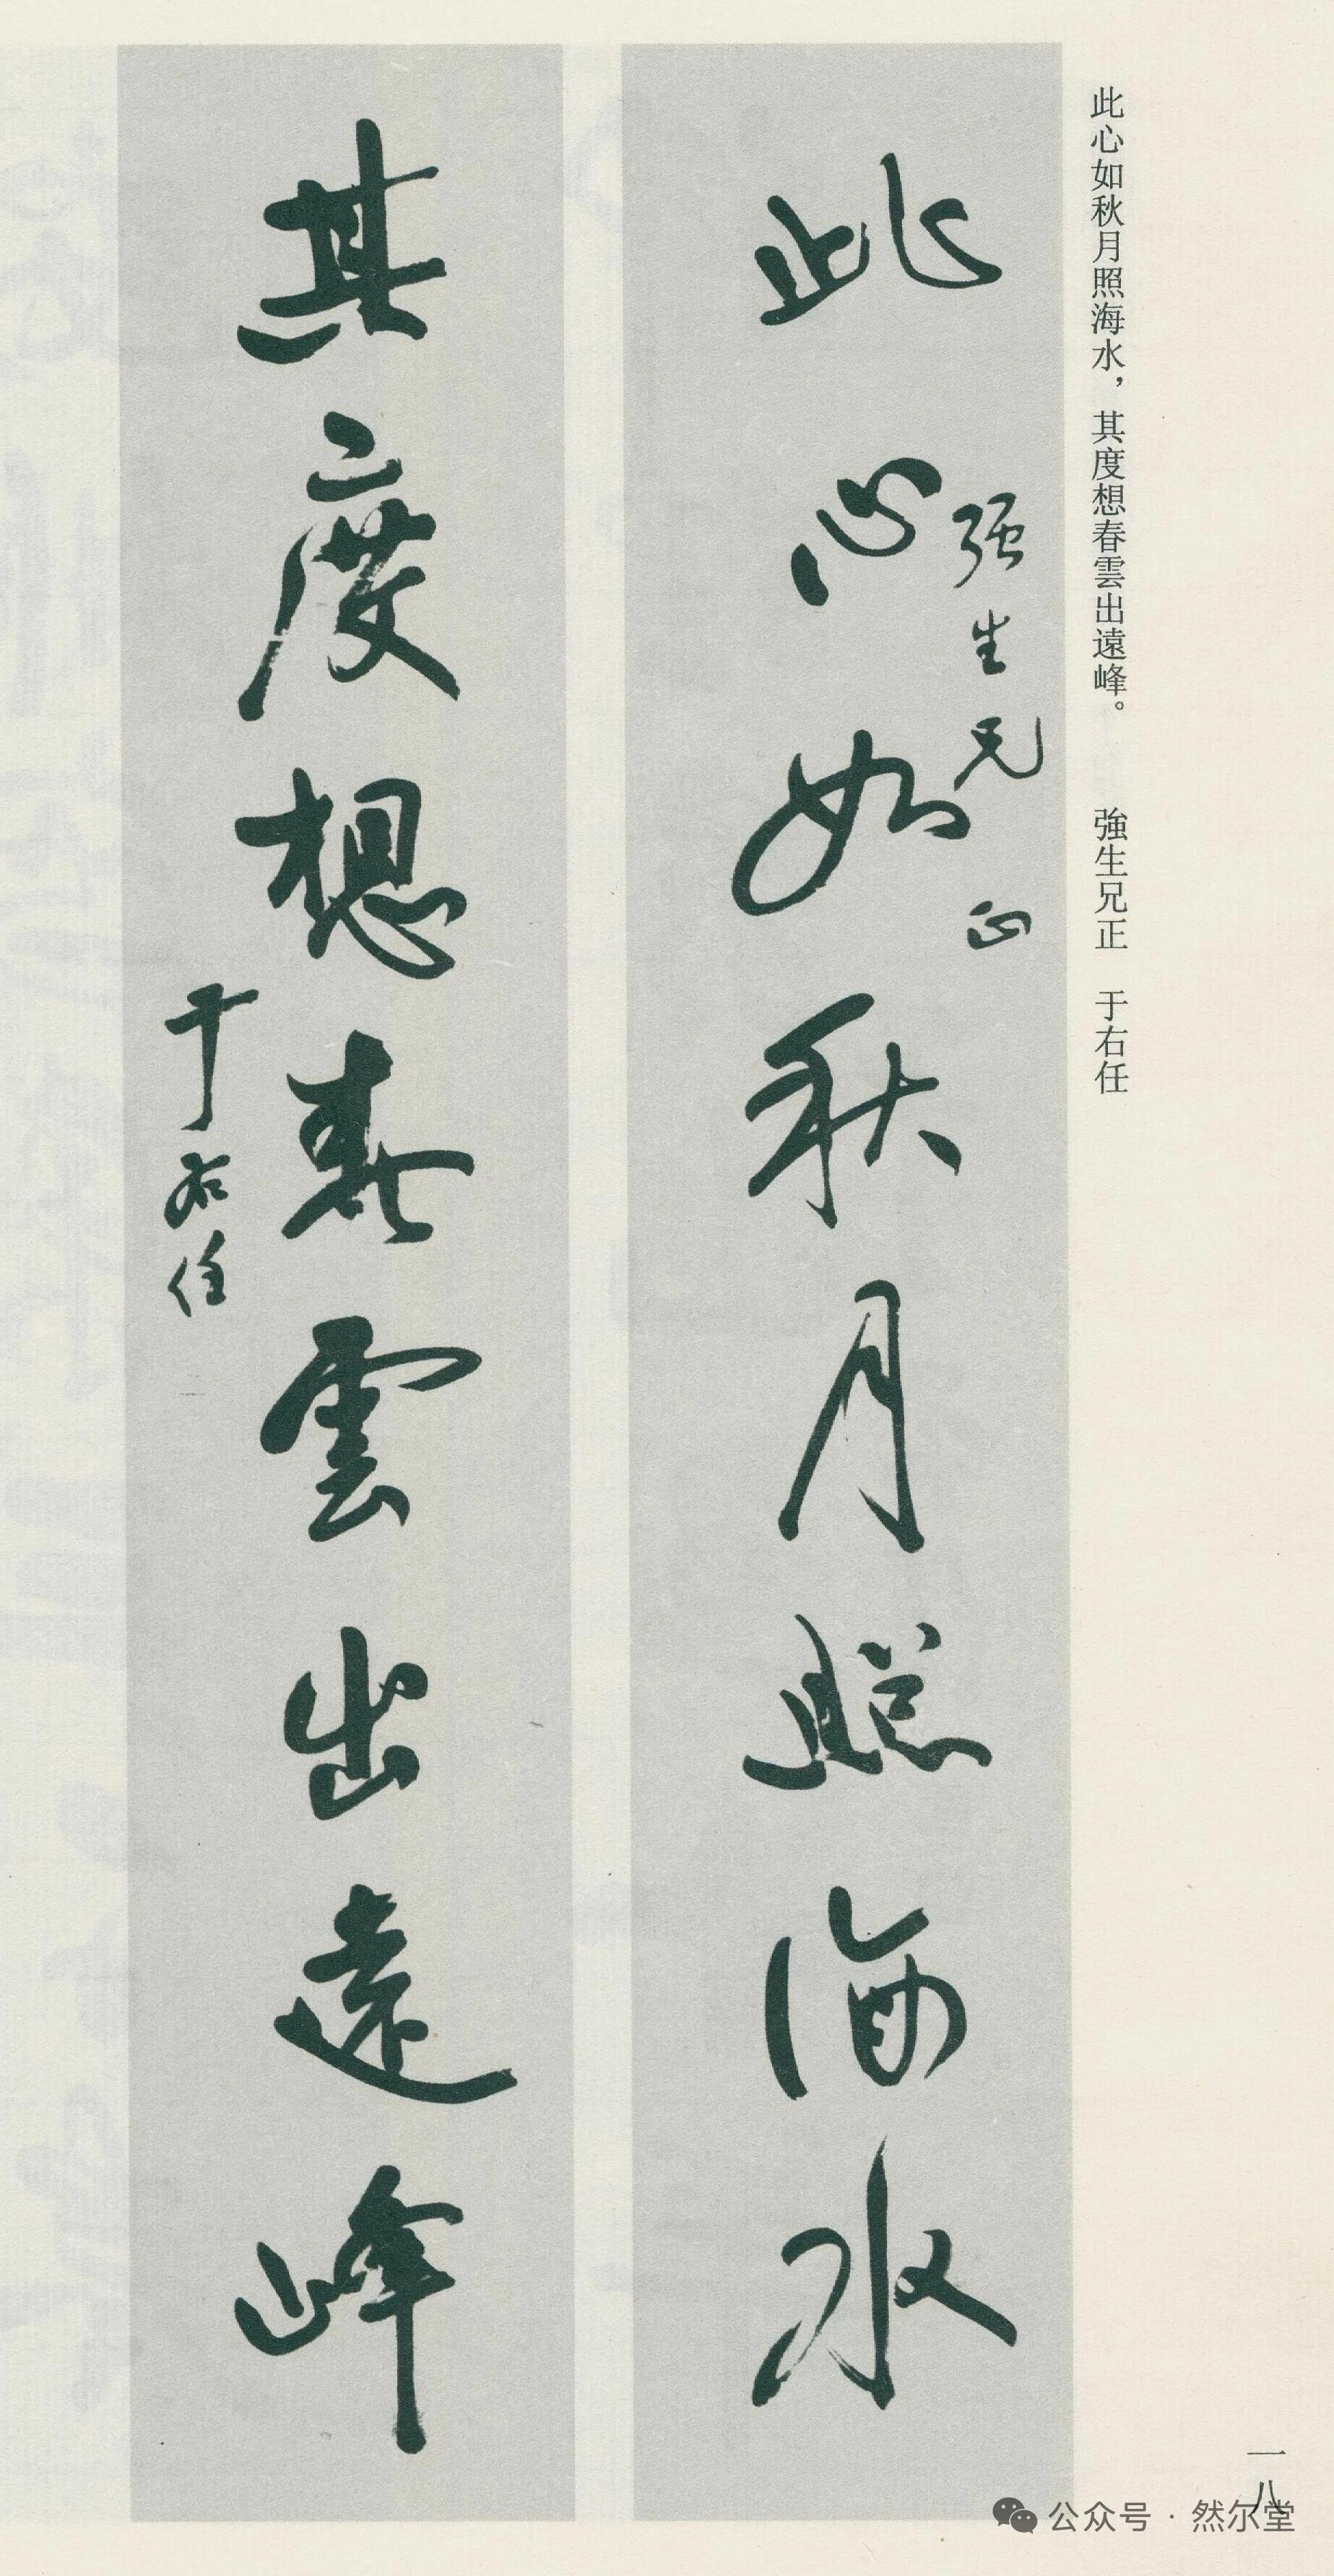 此心如秋月照海水，其度想春雲出遠峰。　強生兄正　于右任
强生兄正
此心如秋月照海水
其度想春雲出遠峰
于右任
一八
公众号 · 然尔堂